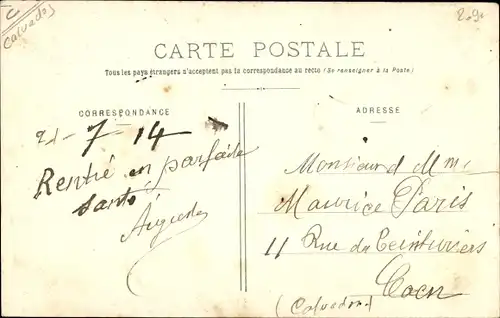 C
Calvados
CARTE POSTALE
Tous les pays étrangers n'acceptent pas la correspondance au recto (Se renseigner à la Poste)
CORRESPONDANCE
7 - 14
Rentré en parfaite
santé
ADRESSE
Monsieur & Mme
Maurice Paris
11 Rue des Teinturiers
Caen
(Calvados)